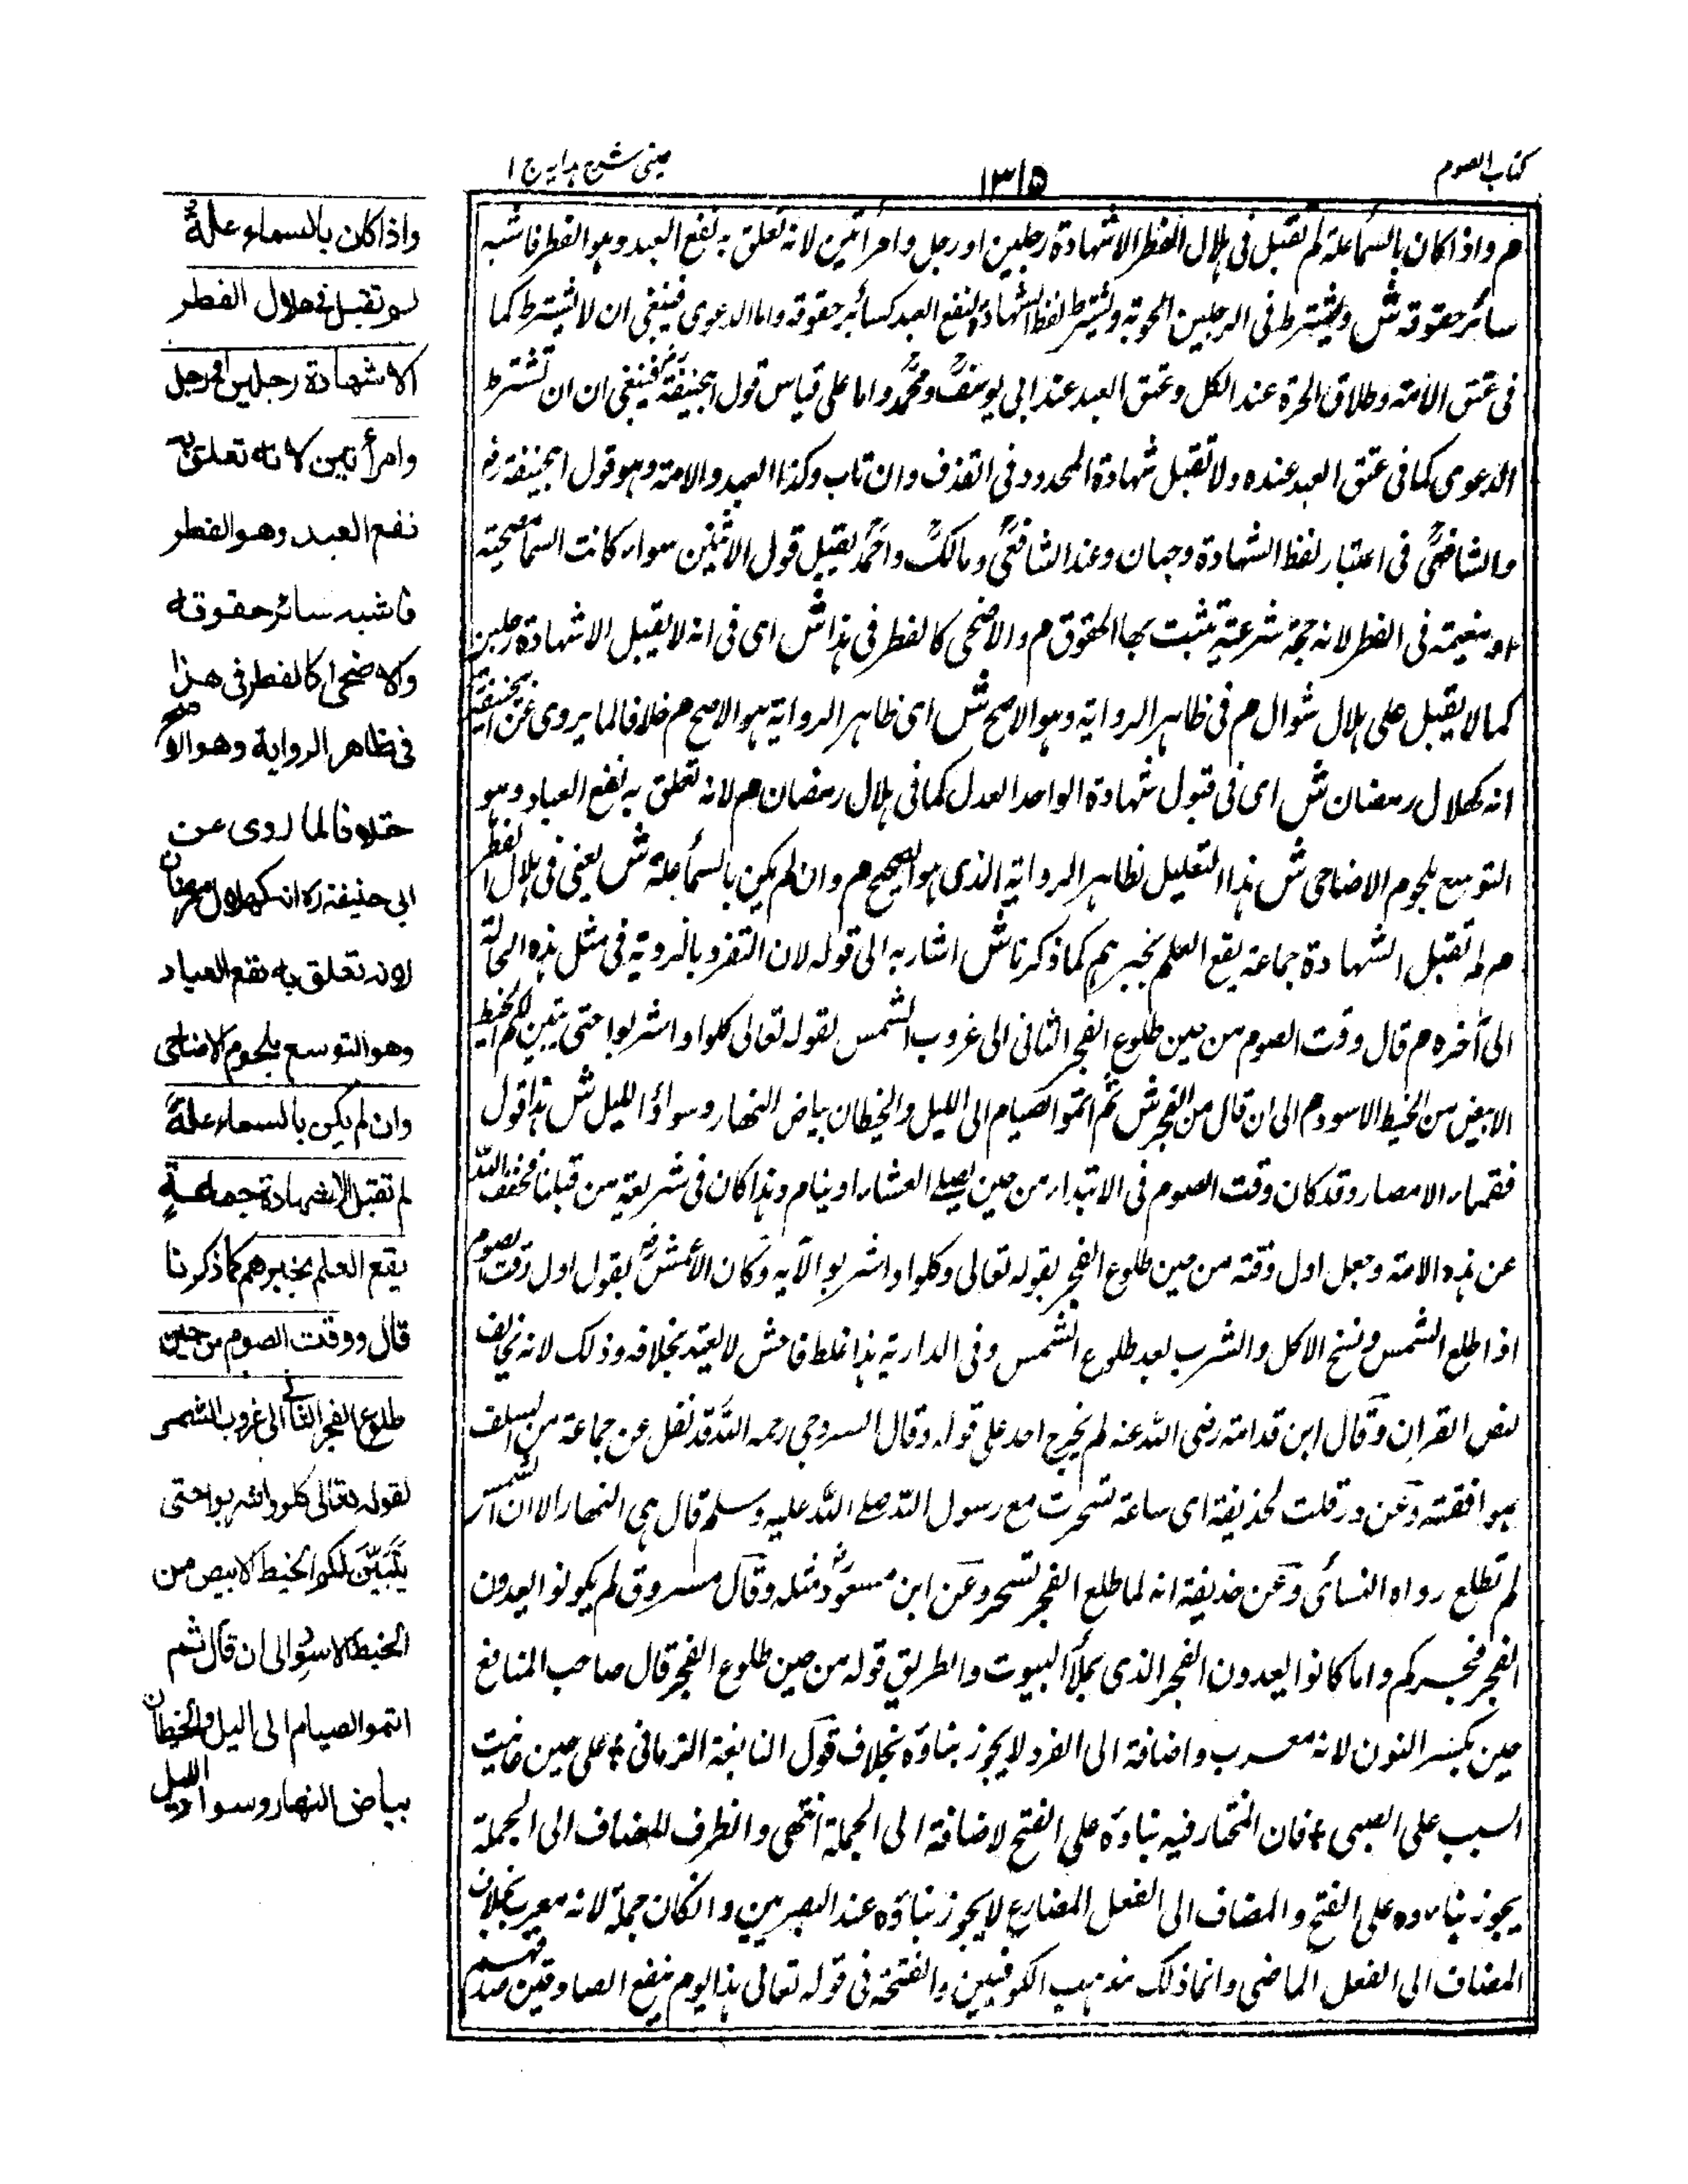 كتاب الصوم
١٣١٥
عینی شرح ہدایہ ج ١
م واذا كان بالسماء علة لم تقبل فى هلال الفطر الا شهادة رجلين او رجل وامرأتين لانه تعلق به نفع العبد وهو الفطر فاشبه
سائر حقوقه ش ويشترط فى الرجلين الحرية ويشترط لفظ الشهادة لنفع العبد كسائر حقوقه واما الدعوى فينبغى ان لا يشترط كما
فى عتق الامة وطلاق الحرة عند الكل وعتق العبد عند ابى يوسف ومحمد واما على قياس قول ابيحنيفة فينبغى ان ان تشترط
الدعوى كما فى عتق العبد عنده ولا تقبل شهادة المحدود فى القذف وان تاب وكذا العبد والامة وهو قول ابيحنيفة رض
والشافعى فى اعتبار لفظ الشهادة وجهان وعند الشافعى ومالك واحمد يقبل قول الاثنين سواء كانت السماء مصحية
او مغيمة فى الفطر لانه حجة شرعية يثبت بها الحقوق م والاضحى كالفطر فى هذا ش اى فى انه لا يقبل الا شهادة رجلين
كما لا يقبل على هلال شوال م فى ظاهر الرواية وهو الاصح ش اى ظاهر الرواية هو الاصح م خلافا لما يروى عن ابيحنيفة
انه كهلال رمضان ش اى فى قبول شهادة الواحد العدل كما فى هلال رمضان م لانه تعلق به نفع العباد وهو
التوسع بلحوم الاضاحى ش هذا التعليل لظاهر الرواية الذى هو الصحيح م وان لم يكن بالسماء علة ش يعنى فى هلال الفطر
م لم تقبل الشهادة جماعة يقع العلم بخبرهم كما ذكرنا ش اشار به الى قوله لان التفرد بالروية فى مثل هذه الحالة
الى آخره م قال ووقت الصوم من حين طلوع الفجر الثانى الى غروب الشمس لقوله تعالى كلوا واشربوا حتى يتبين لكم الخيط
الابيض من الخيط الاسود م الى ان قال من الفجر ش ثم اتموا الصيام الى الليل والخيطان بياض النهار وسواد الليل ش هذا قول
فقهاء الامصار وقد كان وقت الصوم فى الابتداء من حين يصلى العشاء او ينام وهذا كان فى شريعة من قبلنا فخفف الله
عن هذه الامة وجعل اول وقته من حين طلوع الفجر بقوله تعالى وكلوا واشربوا الآية وكان الأعمش يقول اول وقت الصوم
اذا طلع الشمس ويبيح الاكل والشرب بعد طلوع الشمس وفى الدراية هذا غلط فاحش لا يعتد بخلافه وذلك لانه يخالف
لنص القران وقال ابن قدامة رضى الله عنه لم يعرج احد على قوله وقال السروجى رحمه الله قد نقل عن جماعة من السلف
بموافقته وعن زر قلت لحذيفة اى ساعة تسحرت مع رسول الله صلى الله عليه وسلم قال هى النهار الا ان الشمس
لم تطلع رواه النسائى وعن حذيفة انه لما طلع الفجر تسحر وعن ابن مسعود مثله وقال مسروق لم يكونوا يعدون
الفجر فجركم وانما كانوا يعدون الفجر الذى يملأ البيوت والطريق قوله من حين طلوع الفجر قال صاحب المنافع
حين بكسر النون لانه معرب واضافة الى الفرد لا يجوز بناؤه بخلاف قول النابغة الذبيانى ؏ على حين عاتبت
السبب على الصبى ؏ فان المختار فيه بناؤه على الفتح لاضافة الى الجملة انتهى والظرف المضاف الى الجملة
يجوز بناؤه على الفتح والمضاف الى الفعل المضارع لا يجوز بناؤه عند البصريين وانكان جملة لانه معرب بخلاف
المضاف الى الفعل الماضى وانما ذلك مذهب الكوفيين والفتحة فى قوله تعالى هذا يوم ينفع الصادقين صدقهم
واذا كان بالسماء علة
لم تقبل فى هلال الفطر
الا شهادة رجلين او رجل
وامرأتين لانه تعلق به
نفع العبد وهو الفطر
فاشبه سائر حقوقه
والاضحى كالفطر فى هذا
فى ظاهر الرواية وهو الاصح
خلافا لما روى عن
ابى حنيفة رح انه كهلال رمضان
لانه تعلق به نفع العباد
وهو التوسع بلحوم الاضاحى
وان لم يكن بالسماء علة
لم تقبل الا شهادة جماعةٍ
يقع العلم بخبرهم كما ذكرنا
قال ووقت الصوم من حين
طلوع الفجر الثانى الى غروب الشمس
لقوله تعالى كلوا واشربوا حتى
يَتَبَيَّنَ لكم الخيط الابيض من
الخيط الاسود الى ان قال ثم
اتموا الصيام الى اليل والخيطان
بياض النهار وسواد الليل